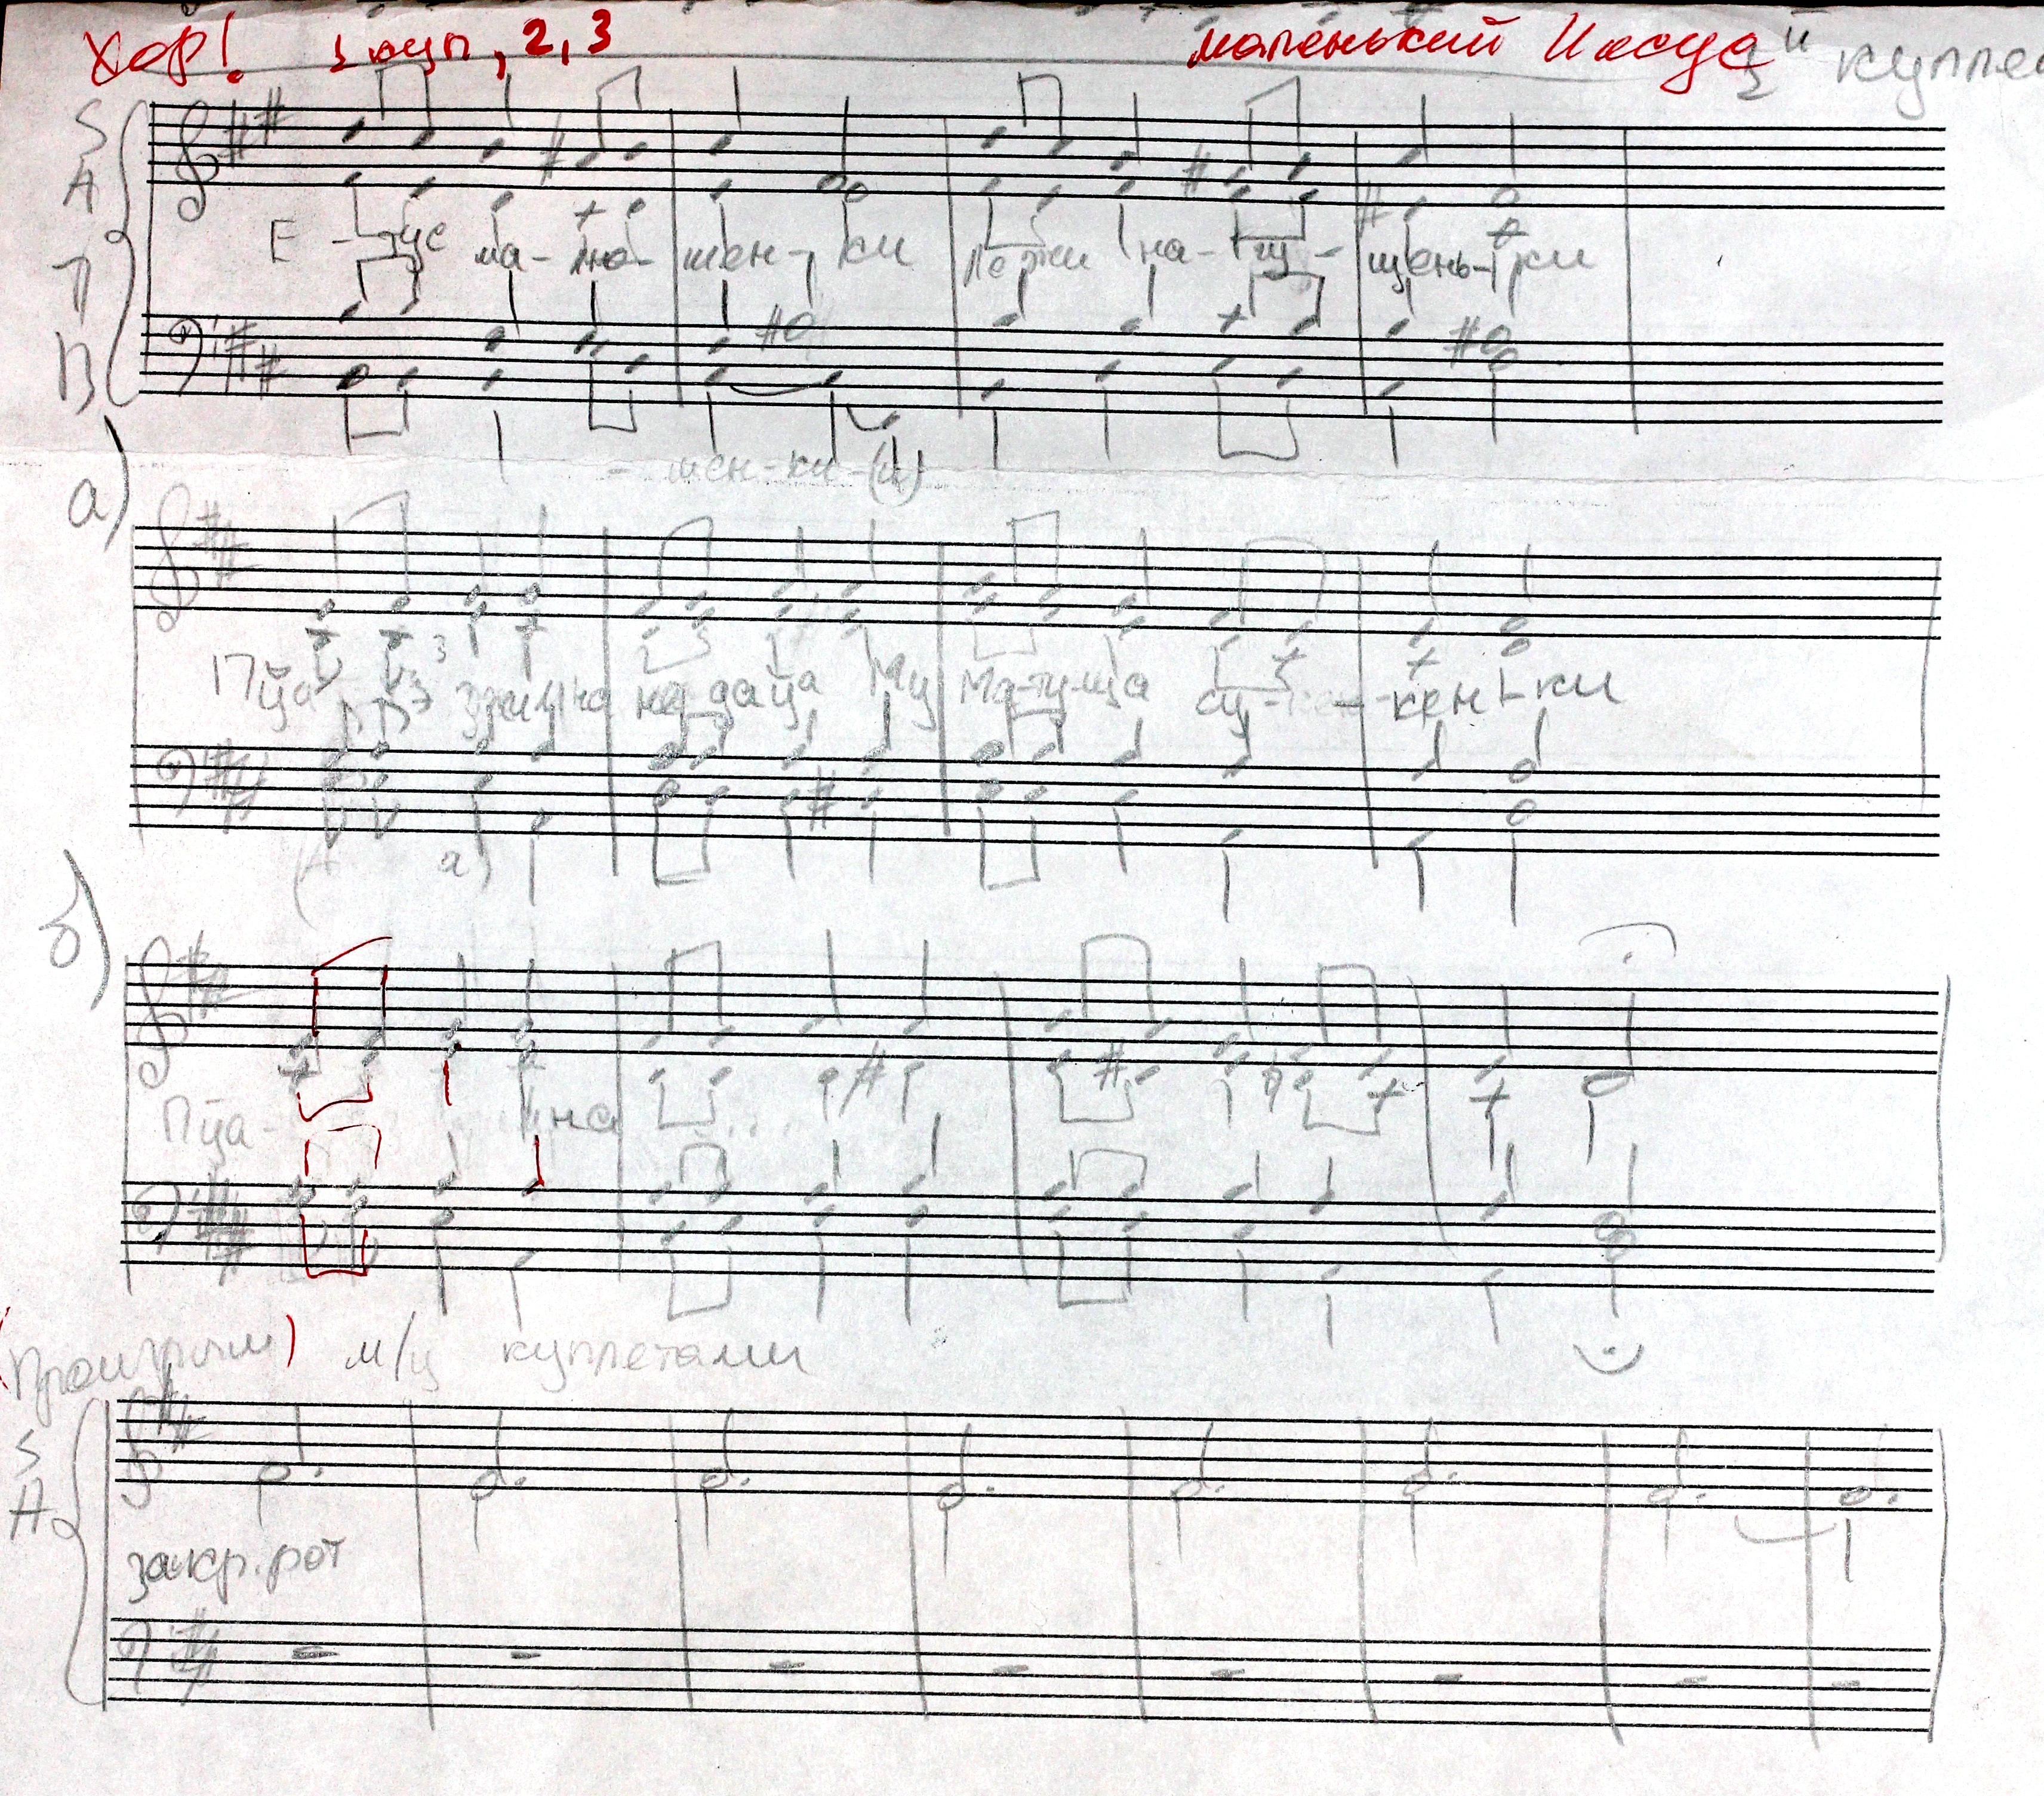 Хор! 1 куп, 2, 3 маленький Иисус
3й куплет
S
A
Е - зус ма - лю - шен - ки Лежи на - гу - щень - ки
Т
В
- шен - ки - (и)
а)
Пца зжи на на даца Му Ма-ту-ща су - кен - ки
а)
б)
Пца - на ...
(Проигрыш) м/ц куплетами
S
A
закр. рот